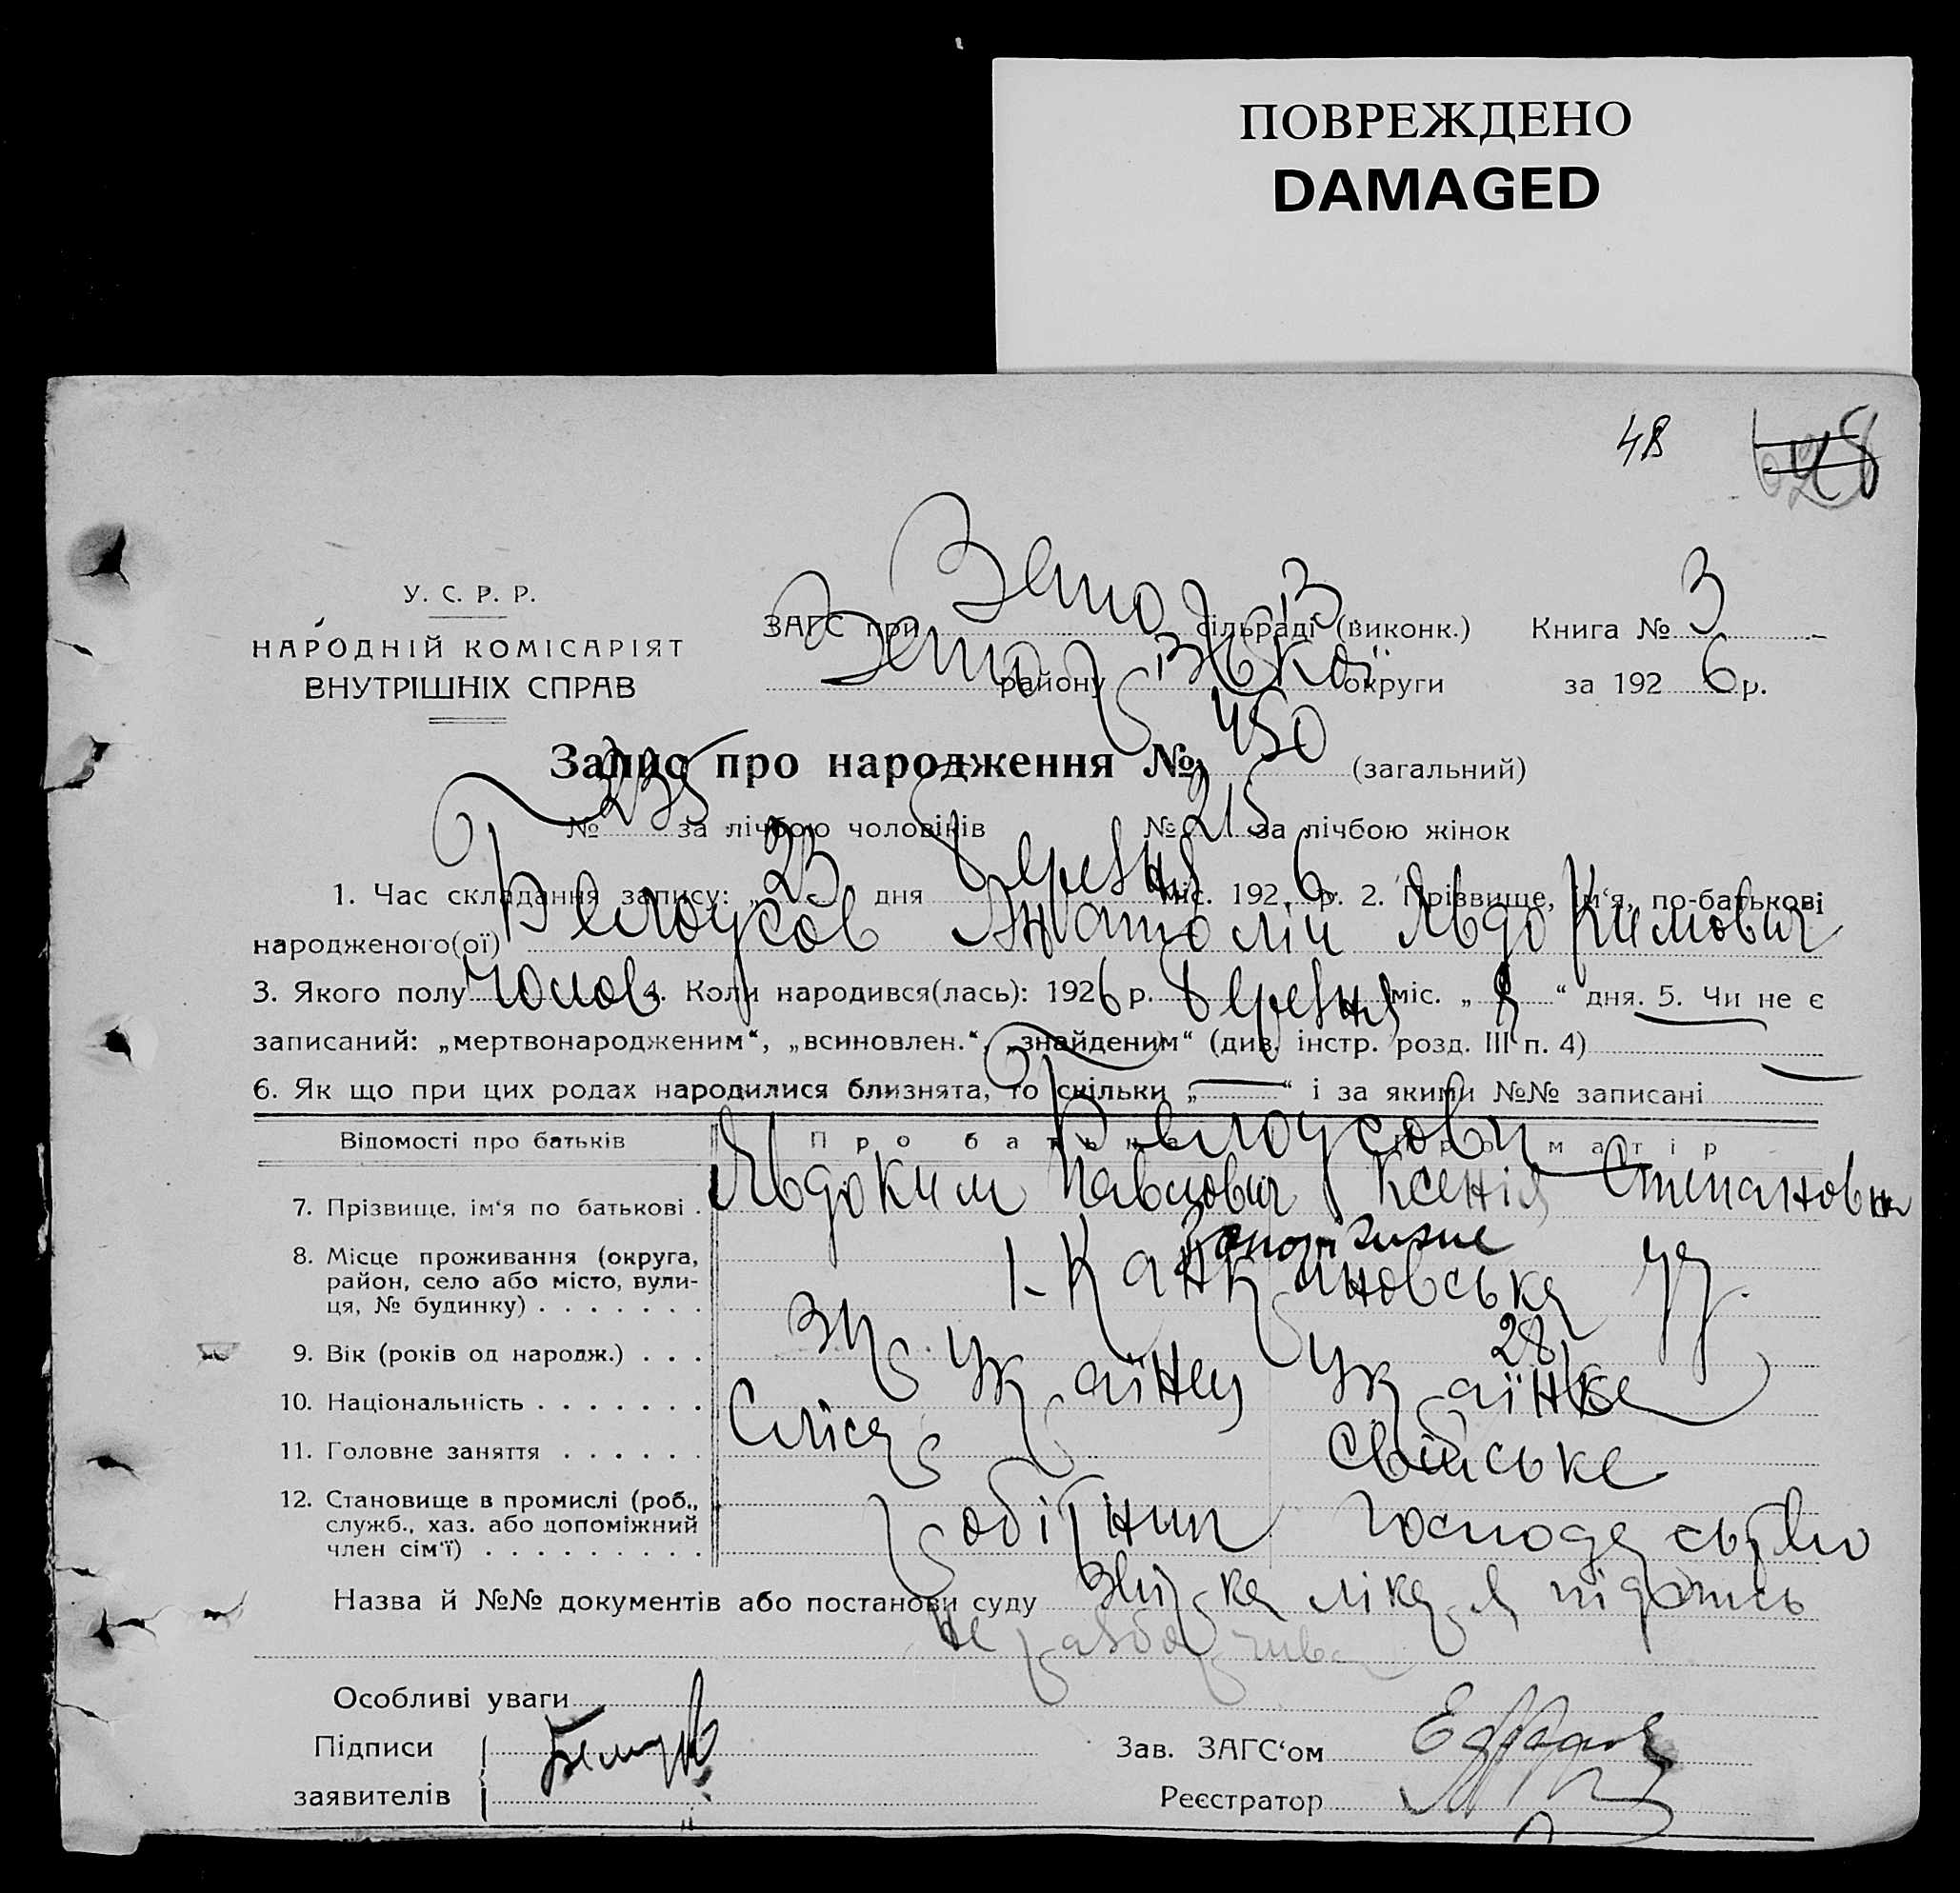 ПОВРЕЖДЕНО
DAMAGED
48
У. С. Р. Р.
НАРОДНІЙ КОМІСАРІЯТ
ВНУТРІШНІХ СПРАВ
ЗАГС при сільраді (виконк.) Книга № 3
району округи за 192 6 р.
Запис про народження № 450 (загальний)
№ 235 за лічбою чоловіків № 215 за лічбою жінок
1. Час складання запису: „ 23 дня Березня міс. 192 6 р. 2. Прізвище, ім‘я, по-батькові
народженого(ої) Белоусов Анатолій Явдокимович
3. Якого полу Чолов 4. Коли народився(лась): 192 6 р. Березня міс. „ “ дня. 5. Чи не є
записаний: „мертвонародженим“, „всиновлен.“, „знайденим“ (див. інстр. розд. III п. 4)
6. Як що при цих родах народилися близнята, то скільки „ — “ і за якими №№ записані
Відомості про батьків Про батька Про матір
Белоусови
7. Прізвище, ім‘я по батькові . Явдоким Павлович Ксенія Степановна
8. Місце проживання (округа,
район, село або місто, вули-
ця, № будинку) . . . . . . .
9. Вік (років од народж.) . . . 28
10. Національність . . . . . . . Українец Українка
11. Головне заняття . . . . . . Слюсар свійське
12. Становище в промислі (роб.,
служб., хаз. або допоміжний
член сім‘ї) . . . . . . . . . робітник господарство
Назва й №№ документів або постанови суду лікаря підпись
не разборчива
Особливі уваги
Підписи
заявителів
Зав. ЗАГС‘ом
Реєстратор